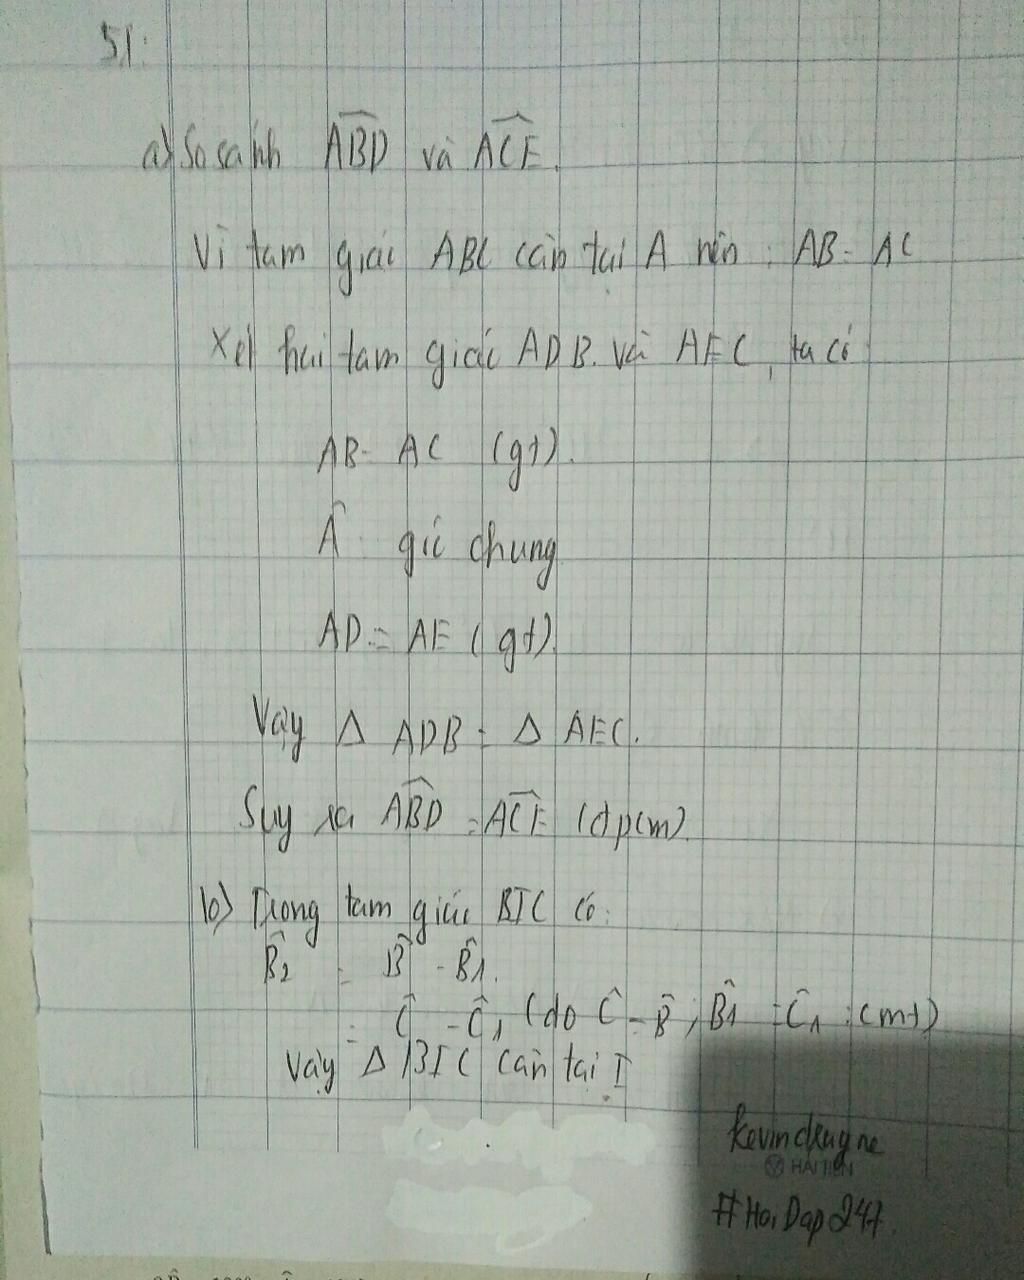 51:
a) So sánh ABD̂ và AĈE.
Vì tam giác ABC cân tại A nên : AB = AC
Xét hai tam giác ADB và AEC, ta có
AB = AC (gt).
Â góc chung
AD = AE (gt).
Vậy Δ ADB = Δ AEC.
Suy ra AB̂D = AĈE (đpcm).
b) Trong tam giác BIC có:
B̂2 = B̂ - B̂1.
= Ĉ - Ĉ1 (do Ĉ = B̂; B̂1 = Ĉ1 :cmt)
Vậy Δ BIC cân tại I
HẢI TIẾN
#HoiDap247